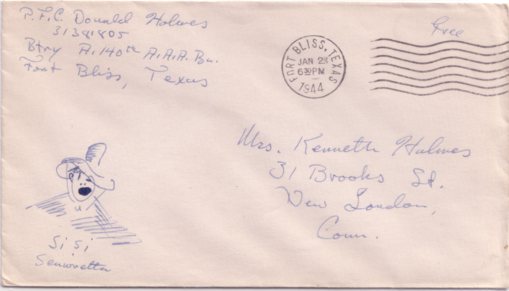 P.F.C. Donald Holmes
31381805
Btry A. 140th A.A.A. Bn.
Fort Bliss, Texas
Free
FORT BLISS, TEXAS
JAN 28
6 30 PM
1944
Mrs. Kenneth Holmes
31 Brooks St.
New London,
Conn.
Si Si
Senworetta